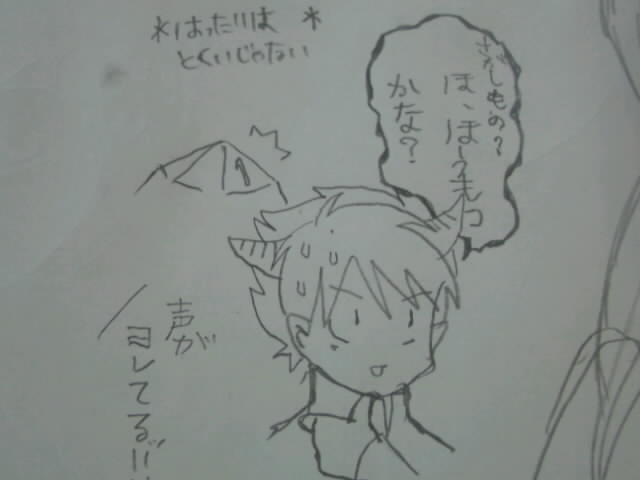 *はったりは*
とくいじゃない
さがしもの?
ほ、ほうもつ
かな?
声が
ヨレてる!!